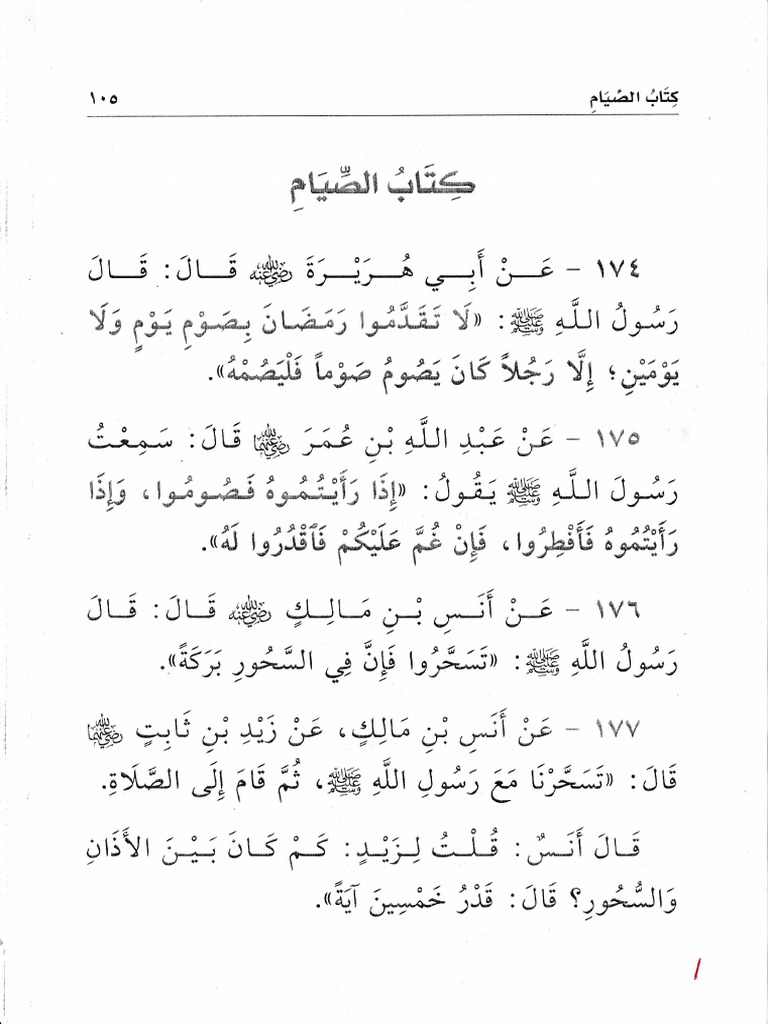 كِتَابُ الصِّيَامِ ١٠٥
كِتَابُ الصِّيَامِ
١٧٤ - عَنْ أَبِي هُرَيْرَةَ رضي الله عنه قَالَ: قَالَ
رَسُولُ اللَّهِ ﷺ: «لَا تَقَدَّمُوا رَمَضَانَ بِصَوْمِ يَوْمٍ وَلَا
يَوْمَيْنِ؛ إِلَّا رَجُلاً كَانَ يَصُومُ صَوْماً فَلْيَصُمْهُ».
١٧٥ - عَنْ عَبْدِ اللَّهِ بْنِ عُمَرَ رضي الله عنهما قَالَ: سَمِعْتُ
رَسُولَ اللَّهِ ﷺ يَقُولُ: «إِذَا رَأَيْتُمُوهُ فَصُومُوا، وَإِذَا
رَأَيْتُمُوهُ فَأَفْطِرُوا، فَإِنْ غُمَّ عَلَيْكُمْ فَٱقْدُرُوا لَهُ».
١٧٦ - عَنْ أَنَسِ بْنِ مَالِكٍ رضي الله عنه قَالَ: قَالَ
رَسُولُ اللَّهِ ﷺ: «تَسَحَّرُوا فَإِنَّ فِي السَّحُورِ بَرَكَةً».
١٧٧ - عَنْ أَنَسِ بْنِ مَالِكٍ، عَنْ زَيْدِ بْنِ ثَابِتٍ رضي الله عنهما
قَالَ: «تَسَحَّرْنَا مَعَ رَسُولِ اللَّهِ ﷺ، ثُمَّ قَامَ إِلَى الصَّلَاةِ.
قَالَ أَنَسٌ: قُلْتُ لِزَيْدٍ: كَمْ كَانَ بَيْنَ الأَذَانِ
وَالسُّحُورِ؟ قَالَ: قَدْرُ خَمْسِينَ آيَةً».